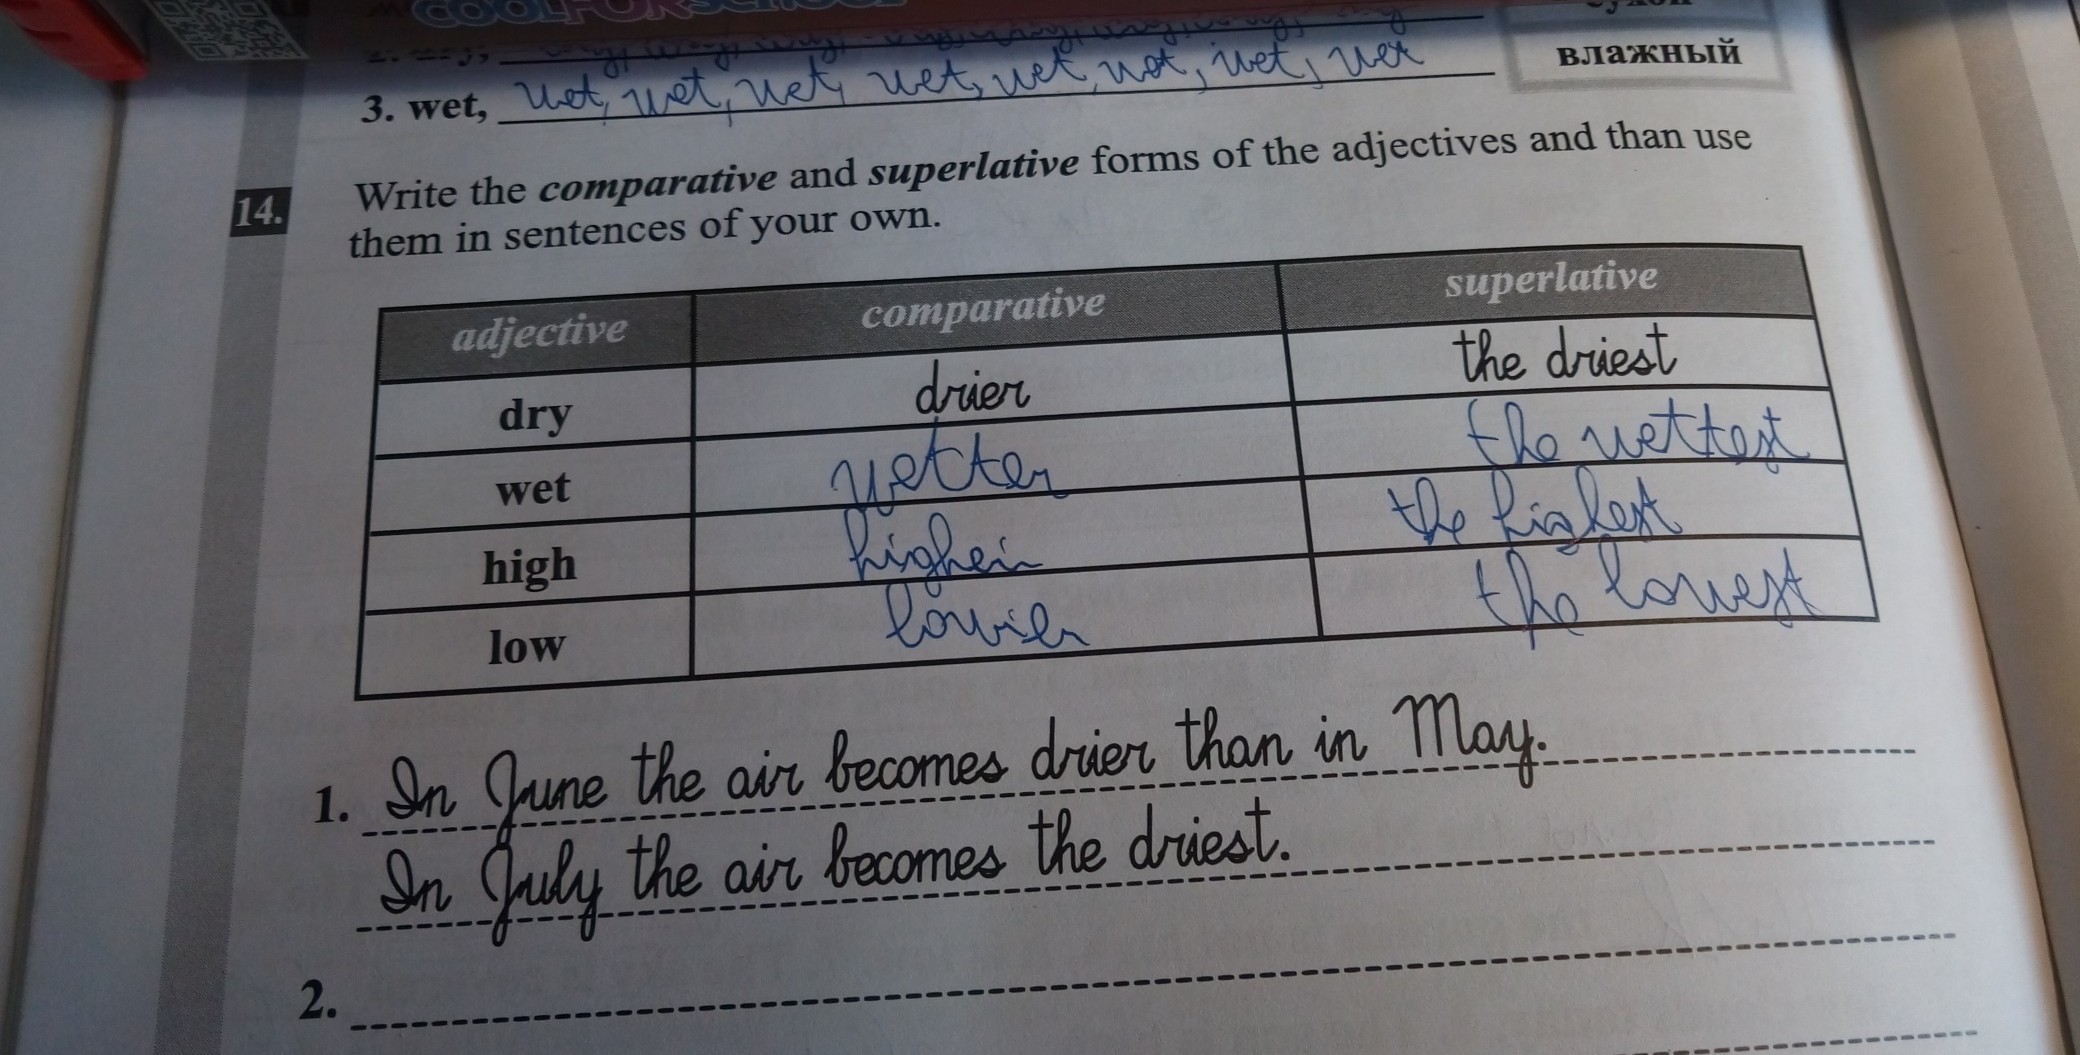 COOLFORSCHOOL
3. wet, wet, wet, wet, wet, wet, wet, wet, wet
влажный
14. Write the comparative and superlative forms of the adjectives and than use
them in sentences of your own.
adjective comparative superlative
dry drier the driest
wet wetter the wettest
high higher the highest
low lower the lowest
1. In June the air becomes drier than in May.
In July the air becomes the driest.
2.